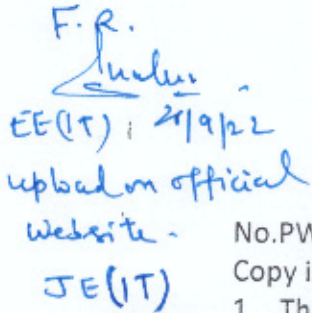 F. R.
EE(IT)
upload on official
website.
JE(IT)
No.PW
Copy i
1. Th